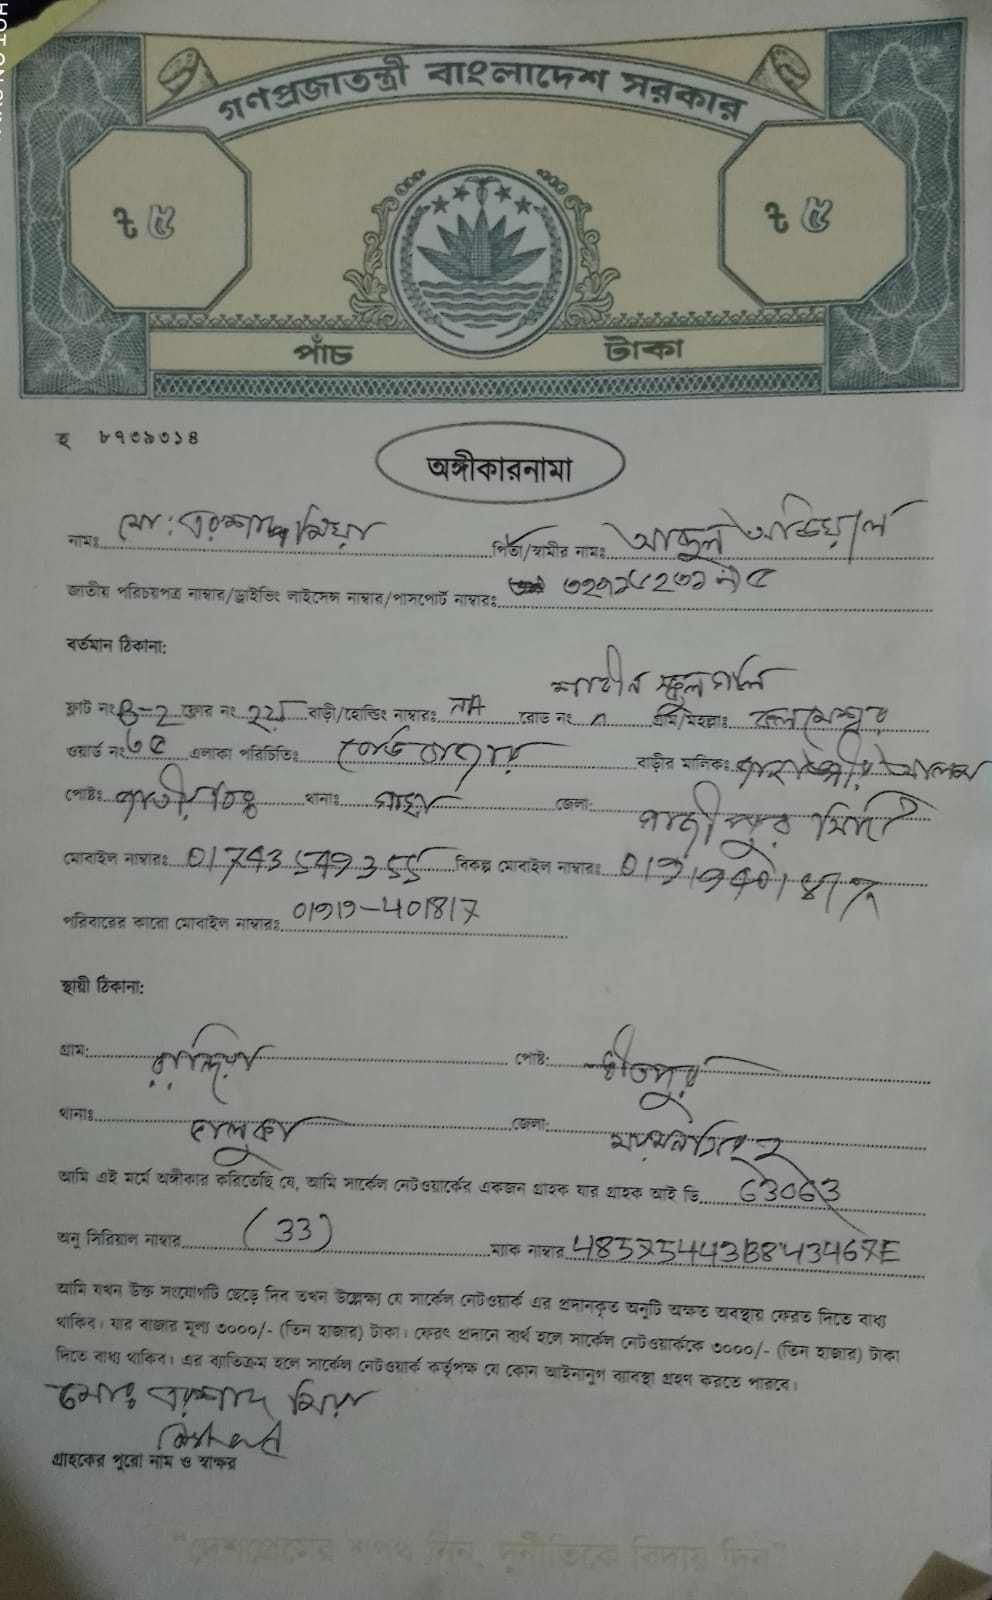 গণপ্রজাতন্ত্রী বাংলাদেশ সরকার
৳ ৫ ৳ ৫
পাঁচ টাকা
হ ৮৭৩৯৩১৪
অঙ্গীকারনামা
নামঃ মো: এরশাদ মিয়া পিতা/স্বামীর নাম: আব্দুল আউয়াল
জাতীয় পরিচয়পত্র নাম্বার/ড্রাইভিং লাইসেন্স নাম্বার/পাসপোর্ট নাম্বারঃ
বর্তমান ঠিকানা:
শাহীন স্কুল গলি
ফ্লাট নং B-2 ফ্লোর নং ২য় বাড়ী/হোল্ডিং নাম্বারঃ NA রোড নং গ্রাম/মহল্লাঃ কলমেশ্বর
ওয়ার্ড নং ৩৫ এলাকা পরিচিতিঃ বোর্ড বাজার বাড়ীর মালিকঃ জাহাঙ্গীর আলম
পোষ্টঃ থানাঃ গাছা জেলা: গাজীপুর সিটি
মোবাইল নাম্বারঃ 01743549355 বিকল্প মোবাইল নাম্বারঃ
পরিবারের কারো মোবাইল নাম্বারঃ 01919-401817
স্থায়ী ঠিকানা:
গ্রাম: পোষ্ট:
থানাঃ ভালুকা জেলা: ময়মনসিংহ
আমি এই মর্মে অঙ্গীকার করিতেছি যে, আমি সার্কেল নেটওয়ার্কের একজন গ্রাহক যার গ্রাহক আই ডি 63063
অনু সিরিয়াল নাম্বার (33) ম্যাক নাম্বার 48575443B843467E
আমি যখন উক্ত সংযোগটি ছেড়ে দিব তখন উল্লেক্ষ্য যে সার্কেল নেটওয়ার্ক এর প্রদানকৃত অনুটি অক্ষত অবস্থায় ফেরত দিতে বাধ্য
থাকিব। যার বাজার মূল্য ৩০০০/- (তিন হাজার) টাকা। ফেরৎ প্রদানে ব্যর্থ হলে সার্কেল নেটওয়ার্ককে ৩০০০/- (তিন হাজার) টাকা
দিতে বাধ্য থাকিব। এর ব্যতিক্রম হলে সার্কেল নেটওয়ার্ক কর্তৃপক্ষ যে কোন আইনানুগ ব্যাবস্থা গ্রহণ করতে পারবে।
মোঃ এরশাদ মিয়া
গ্রাহকের পুরো নাম ও স্বাক্ষর
"দেশপ্রেমের শপথ নিন, দুর্নীতিকে বিদায় দিন"